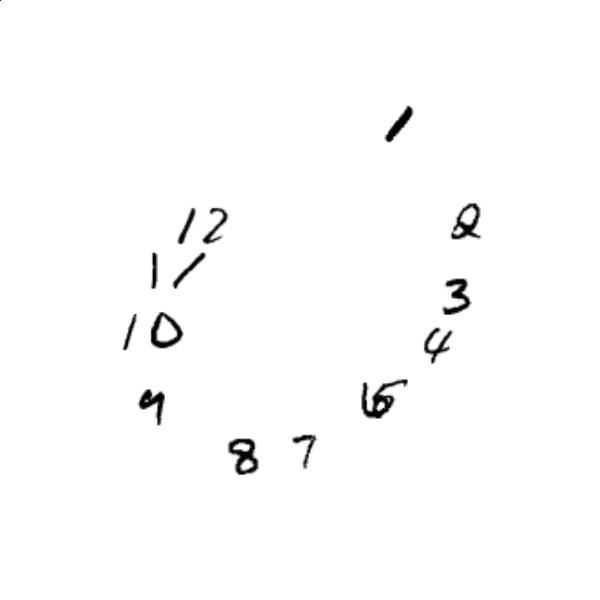 1
12 2
11 3
10 4
9
8 7